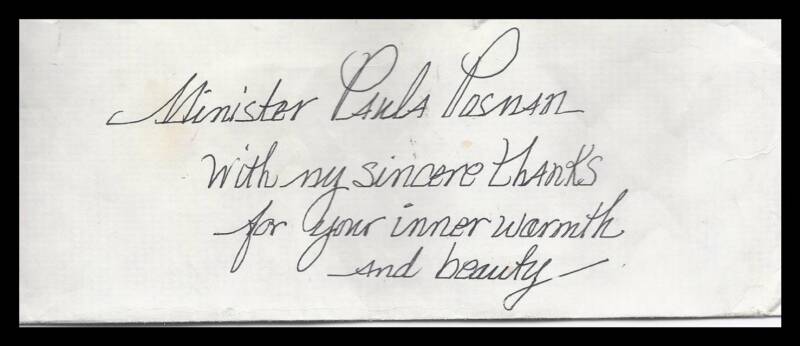 Minister Paula Posnan
With my sincere thanks
for your inner warmth
and beauty —